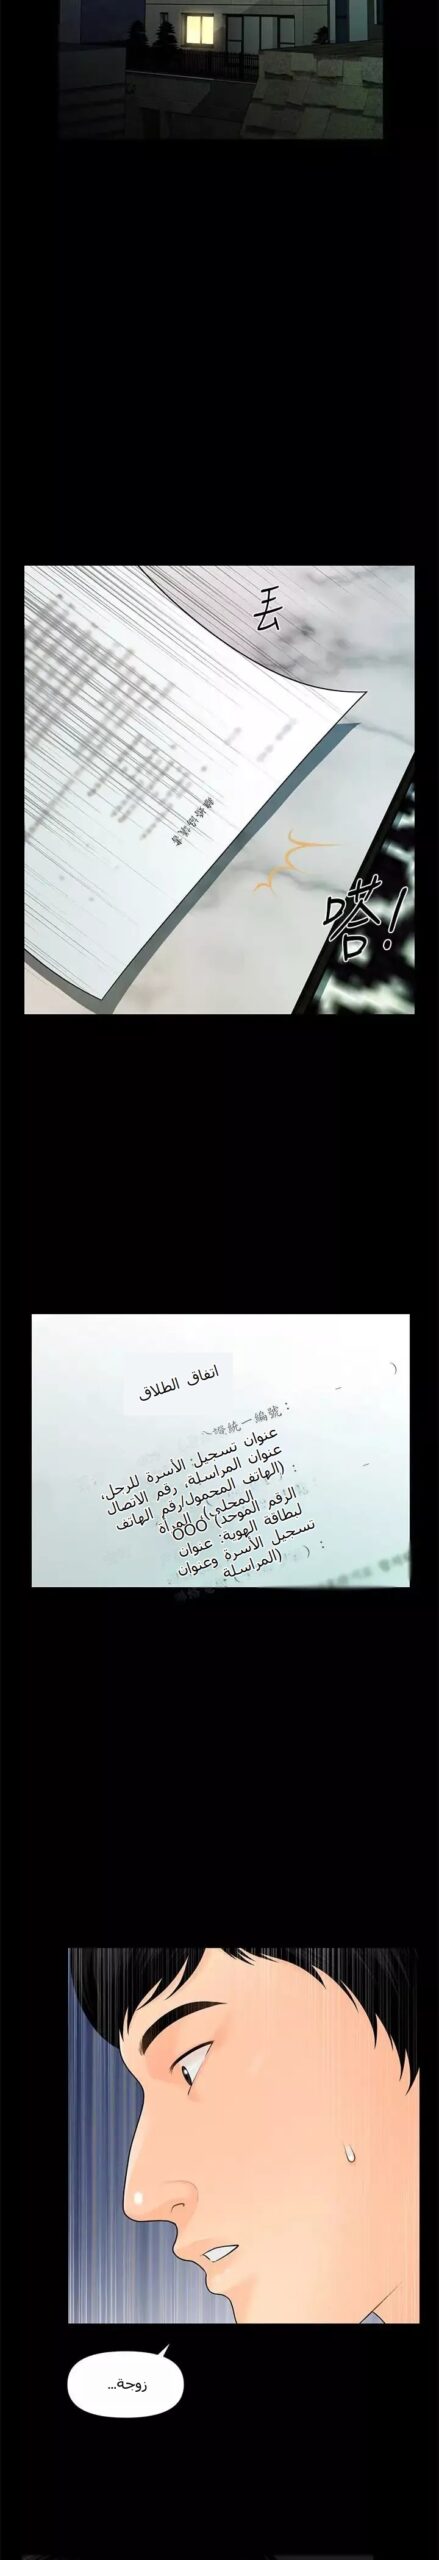 丟
離婚協議書
嗒!
اتفاق الطلاق
證統一編號:
عنوان تسجيل الأسرة للرجل،
عنوان المراسلة، رقم الاتصال
(الهاتف المحمول/رقم الهاتف
المحلي)، المرأة
الرقم الموحد) OOO
لبطاقة الهوية: عنوان
تسجيل الأسرة وعنوان
(المراسلة
زوجة...